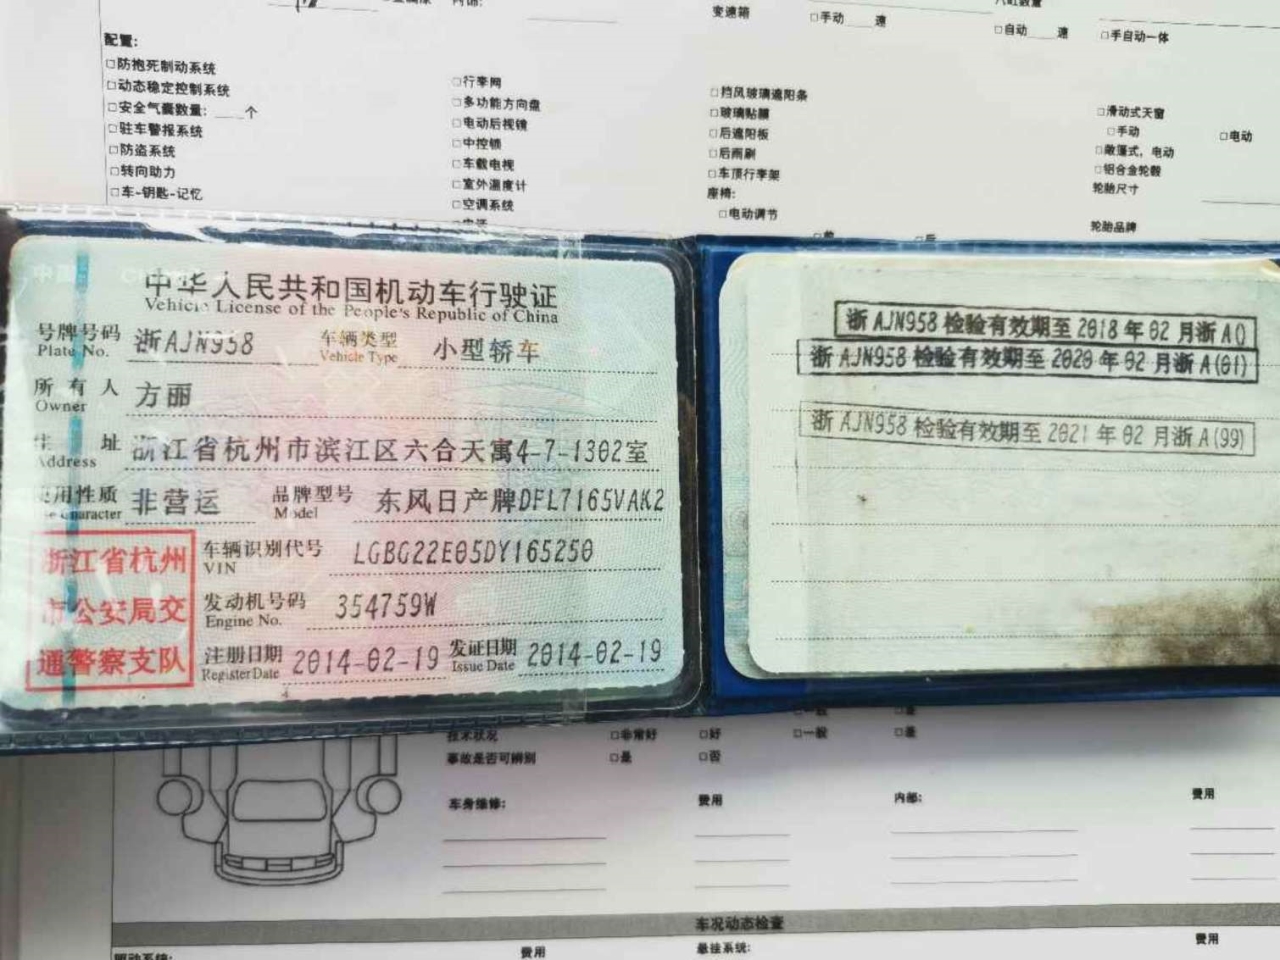 内饰:
变速箱 □手动 速 □自动 速 □手自动一体
配置:
□防抱死制动系统
□动态稳定控制系统
□安全气囊数量: 个
□驻车警报系统
□防盗系统
□转向助力
□车-钥匙-记忆
□行李网
□多功能方向盘
□电动后视镜
□中控锁
□车载电视
□室外温度计
□空调系统
□挡风玻璃遮阳条
□玻璃贴膜
□后遮阳板
□后雨刷
□车顶行李架
座椅:
□电动调节
□滑动式天窗
□手动 □电动
□敞篷式，电动
□铝合金轮毂
轮胎尺寸
轮胎品牌
中华人民共和国机动车行驶证
Vehicle License of the People's Republic of China
号牌号码 浙AJN958 车辆类型 小型轿车
Plate No. Vehicle Type
所有人 方丽
Owner
住址 浙江省杭州市滨江区六合天寓4-7-1302室
Address
使用性质 非营运 品牌型号 东风日产牌DFL7165VAK2
Use Character Model
浙江省杭州
市公安局交
通警察支队
车辆识别代号 LGBG22E05DY165250
VIN
发动机号码 354759W
Engine No.
注册日期 2014-02-19 发证日期 2014-02-19
Register Date Issue Date
浙AJN958检验有效期至2018年02月浙A()
浙AJN958检验有效期至2020年02月浙A(01)
浙AJN958检验有效期至2021年02月浙A(99)
技术状况 □非常好 □好 □一般 □差
事故是否可辨别 □是 □否
车身维修: 费用 内部: 费用
车况动态检查
费用 悬挂系统: 费用